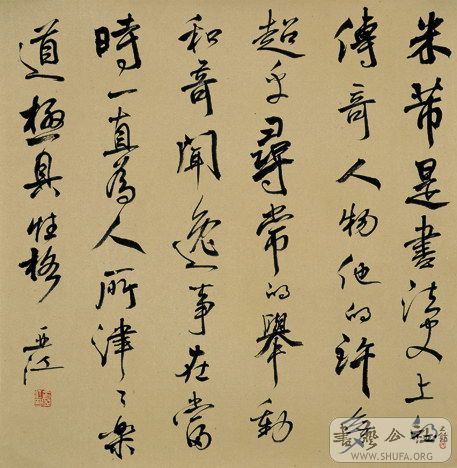 米芾是書法史上的
傳奇人物他的許多
超乎尋常的舉動
和奇聞逸事在當
時一直為人所津々樂
道極具性格
書藝公社
WWW.SHUFA.ORG